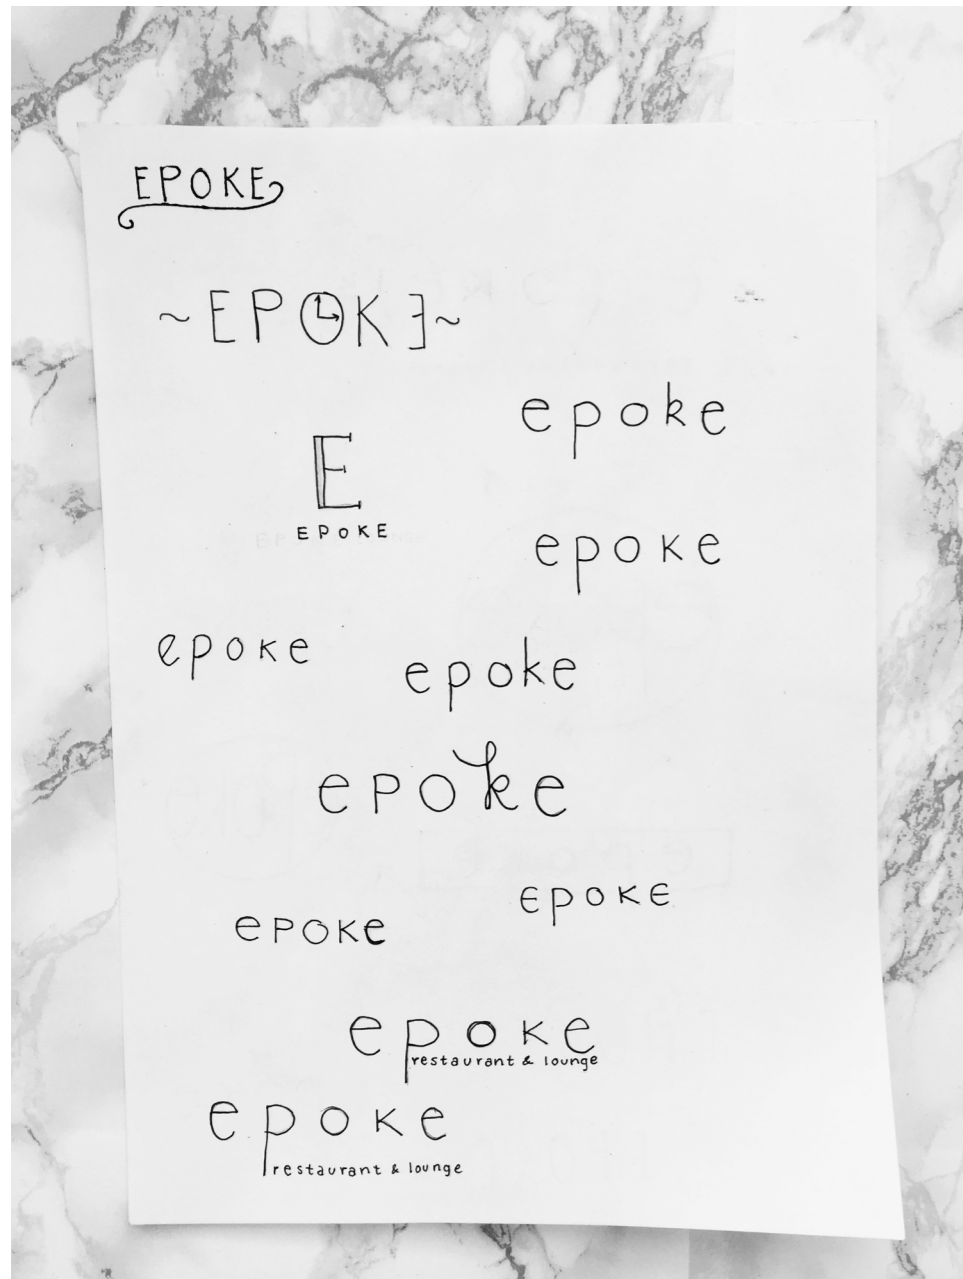 EPOKE
~EPOKE~
epoke
E
EPOKE
epoke
epoke
epoke
epoke
epoke
epoke
epoke
restaurant & lounge
epoke
restaurant & lounge